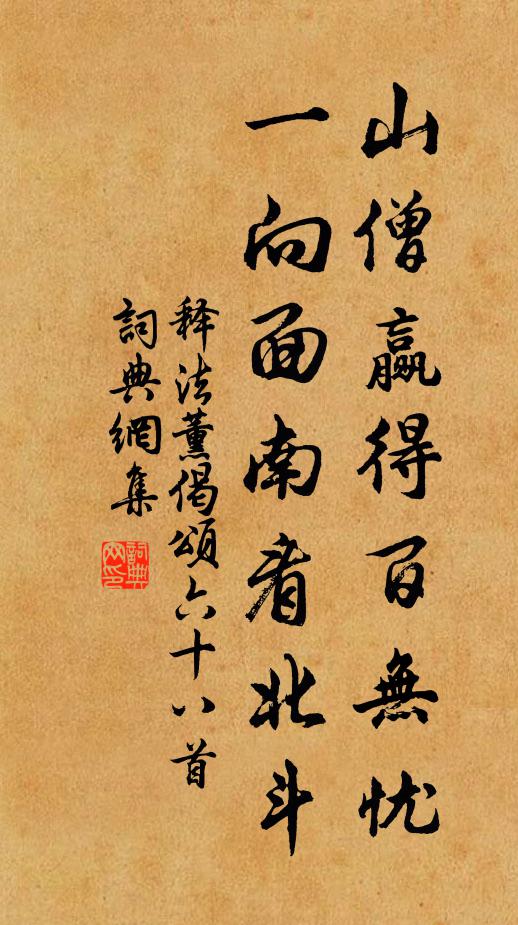 山僧赢得百無忧
一向面南看北斗
释法薰偈頌六十八首
詞典網集
詞典
网印